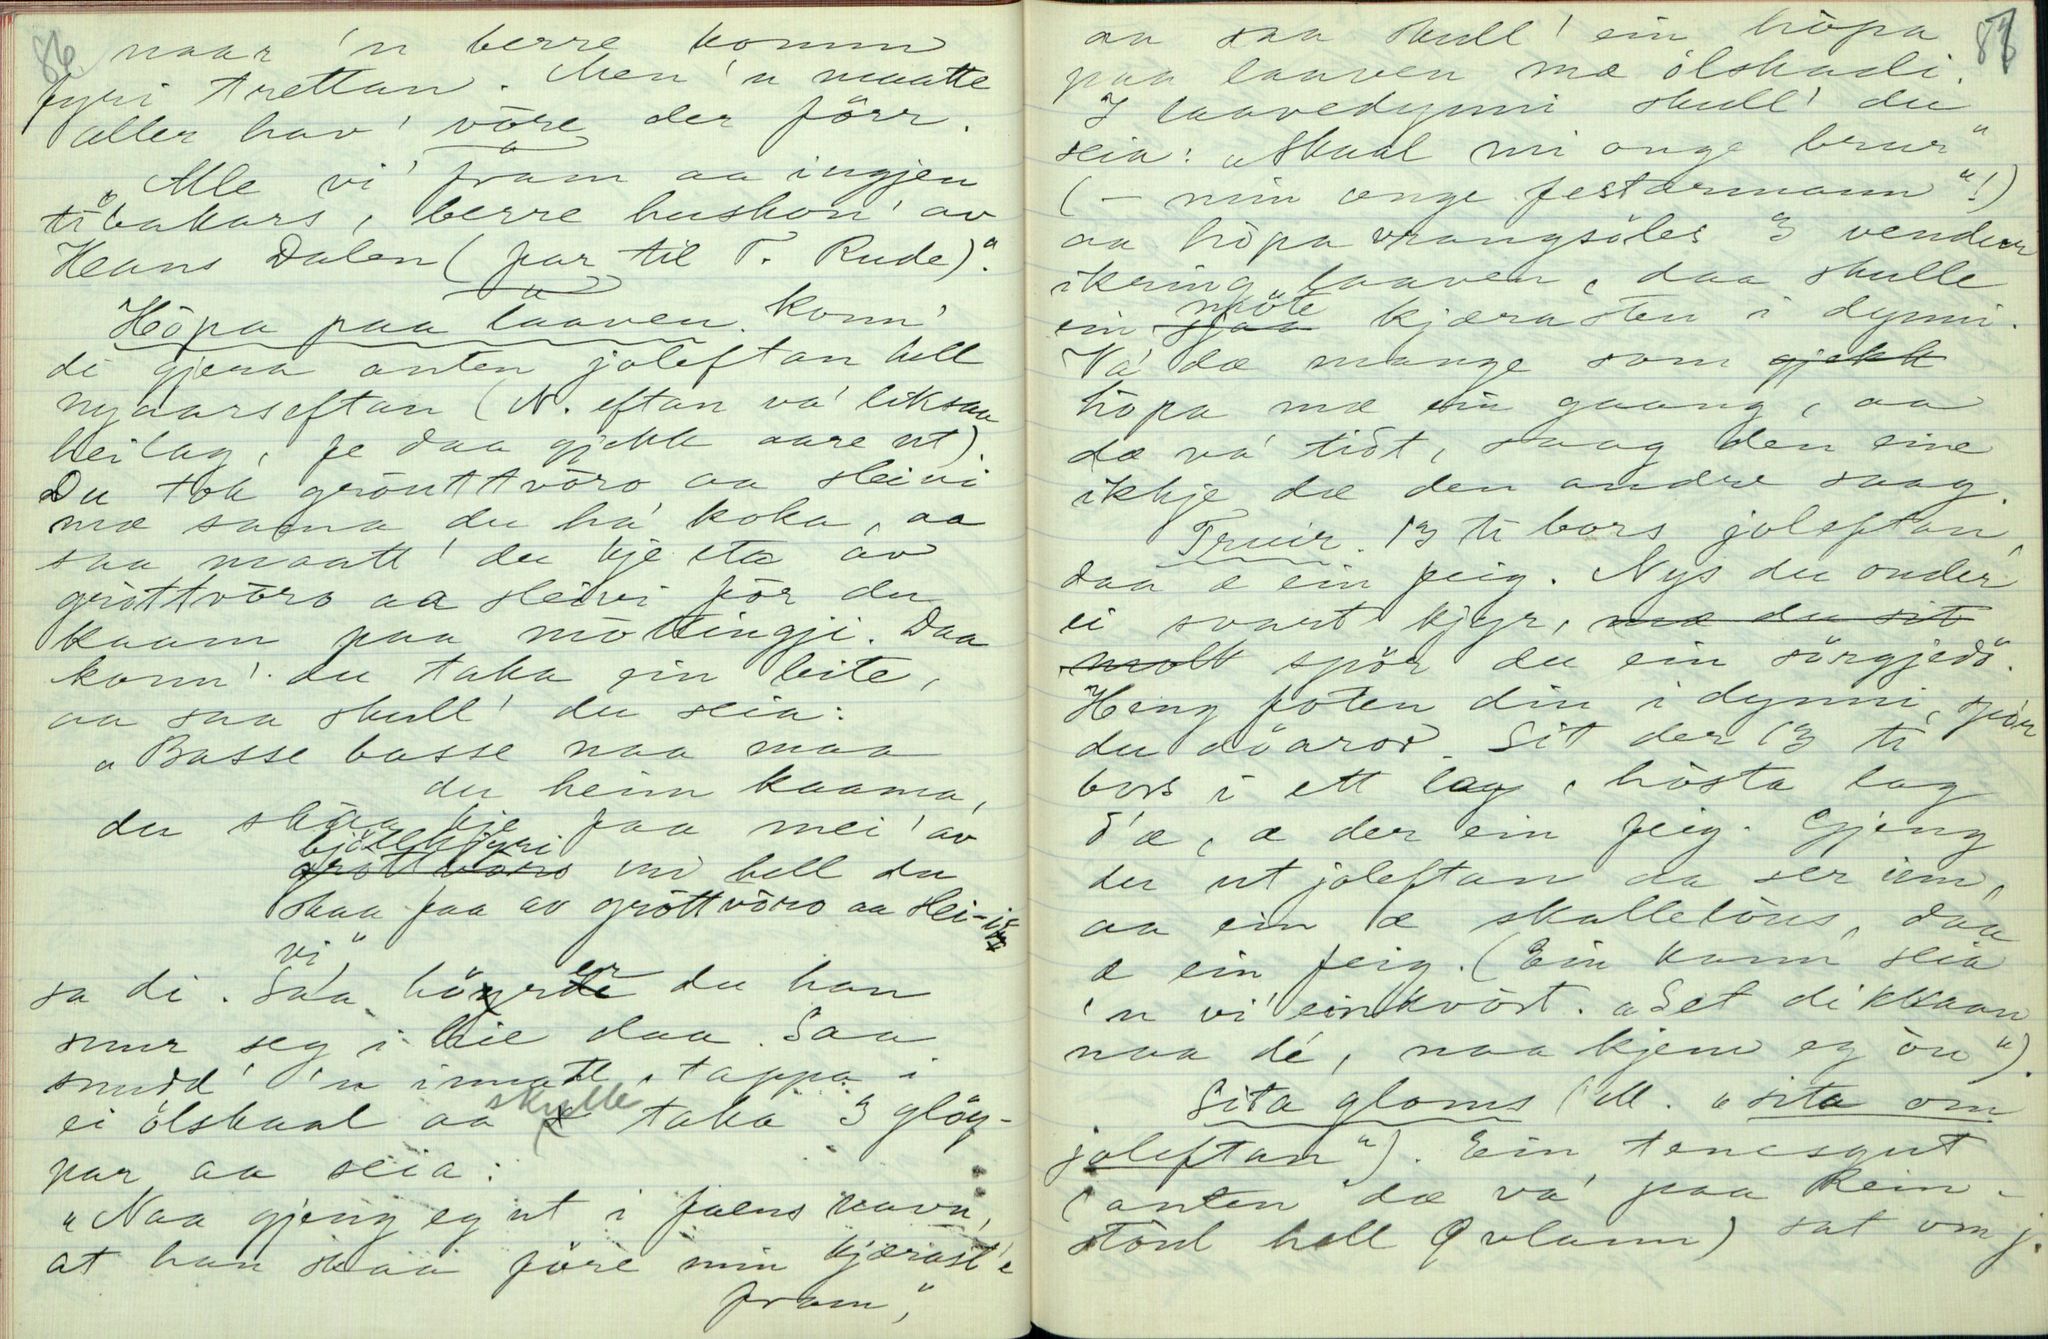 86
naar 'n berre komm
fyri trettan. Men 'n maatte
aller hav' vöre der förr.
"Alle vi' fram aa ingjen
tibakars, berre huskon' av
Hans Dalen (far til T. Rude)".
Höpa paa laaven. konn'
di gjera anten joleftan hell
nyaarseftan (N. eftan va' liksaa
heilag, fe daa gjekk aare ut).
Du tok grönttvöro aa sleivi
mæ sama du ha' koka, aa
saa maatt' du 'kje eta av
gröttvöro aa sleivi för du
kaam paa möttingji. Daa
konn' du taka ein bite,
aa saa skull' du seia:
"Basse basse naa maa
du heim kaama,
du skaa kje faa mei' av
bjöllkjyri
gröttvöro mi hell du
skaa faa av gröttvöro aa slei-
vi"
sa di. Saa höyrer du han
snur seg i hie daa. Saa
snudd' 'n innatt, tappa i
ei ölskaal aa skulle taka 3 glöy-
par aa seia:
"Naa gjeng eg ut i faens navn,
at han skaa före min kjærast'e
fram",
87
aa saa skull' ein höpa
paa laaven mæ ölskaali.
I laavedynni skull' du
seia: "Skaal mi onge brur"
(– min onge festarmann"!)
aa höpa vrangsöles 3 vendur
ikring laaven, daa skulle
ein sjaa möte kjærasten i dynni.
Va' dæ mange som gjekk
höpa mæ ein gaang, aa
dæ va' tidt, saag den eine
ikkje dæ den andre saag.
Truir. 13 ti bors joleftan,
daa æ ein feig. Nys du onder
ei svart kjyr, mæ du sit
molk spör du ein sörgjedö.
Heng foten din i dynni, spör
du döarod. Sit der 13 ti
bors i ett lag, hösta lag
d'æ, æ der ein feig. Gjeng
du ut joleftan aa ser inn,
aa ein æ skallelöus, daa
æ ein feig. (Ein kann seia
'n vi' einkvört. "Set di kkraan
naa dé, naa kjem eg ön").
Sita gloms (ell. "sita om
joleftan"). Ein tenesgut
(anten dæ va' paa Rein-
stönl hell Qvlann) sat om j.